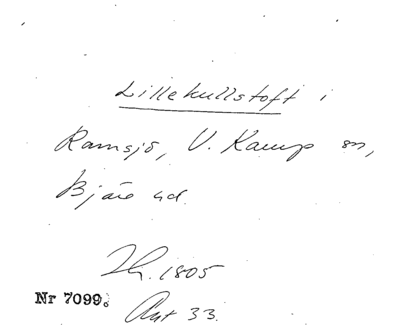 Lillekullstoft i
Ramsjö, V. Karup sn,
Bjäre hd.
Th. 1805
Nr 7099.
Akt 33.